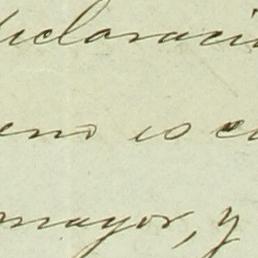 declaraci
eno es c
mayor, y